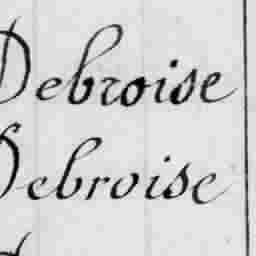 Debroise
Debroise